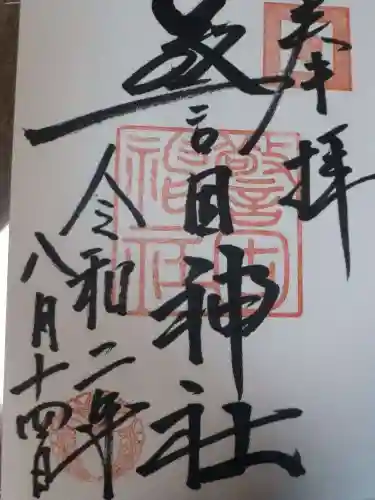 奉拝
警固神社
令和二年
八月十四日